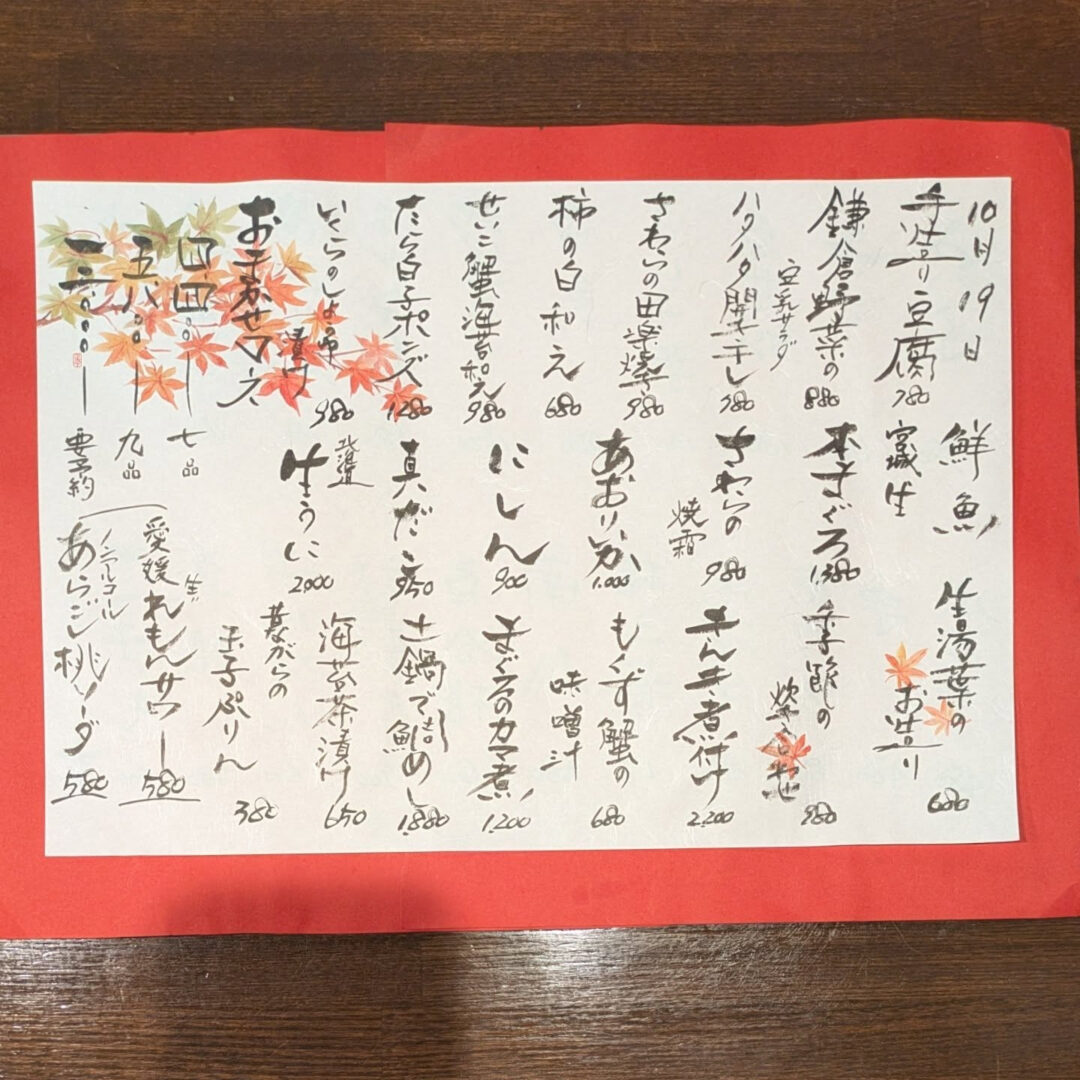 10月19日
手造り豆腐
780
鎌倉野菜の
豆乳サラダ
880
ハタハタ開き干し
780
さわらの田楽焼き
980
柿の白和え
680
せいこ蟹海苔和え
980
たら白子ポンズ
1,280
いくらのしょうゆ
漬け
980
おまかせコース
四四〇〇ー
七品
五八〇〇ー
九品
要予約
鮮魚
宮城生
本まぐろ
1,380
さわらの
焼霜
980
あおりいか
1,000
にしん
900
真だこ
950
北海道
生うに
2,000
生湯葉の
お造り
680
980
きんき煮付け
2,200
もくず蟹の
味噌汁
680
まぐろのカマ煮
1,200
土鍋で鯛めし
1,880
海苔茶漬け
650
昔ながらの
玉子ぷりん
380
愛媛
生
れもんサワー
580
ノンアルコール
あらごし桃ソーダ
580